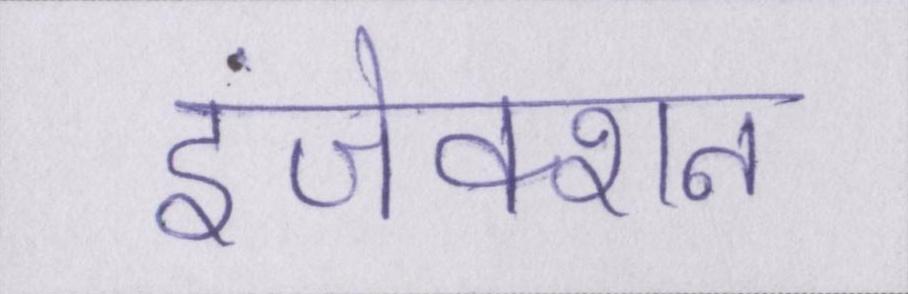 इंजेक्शन